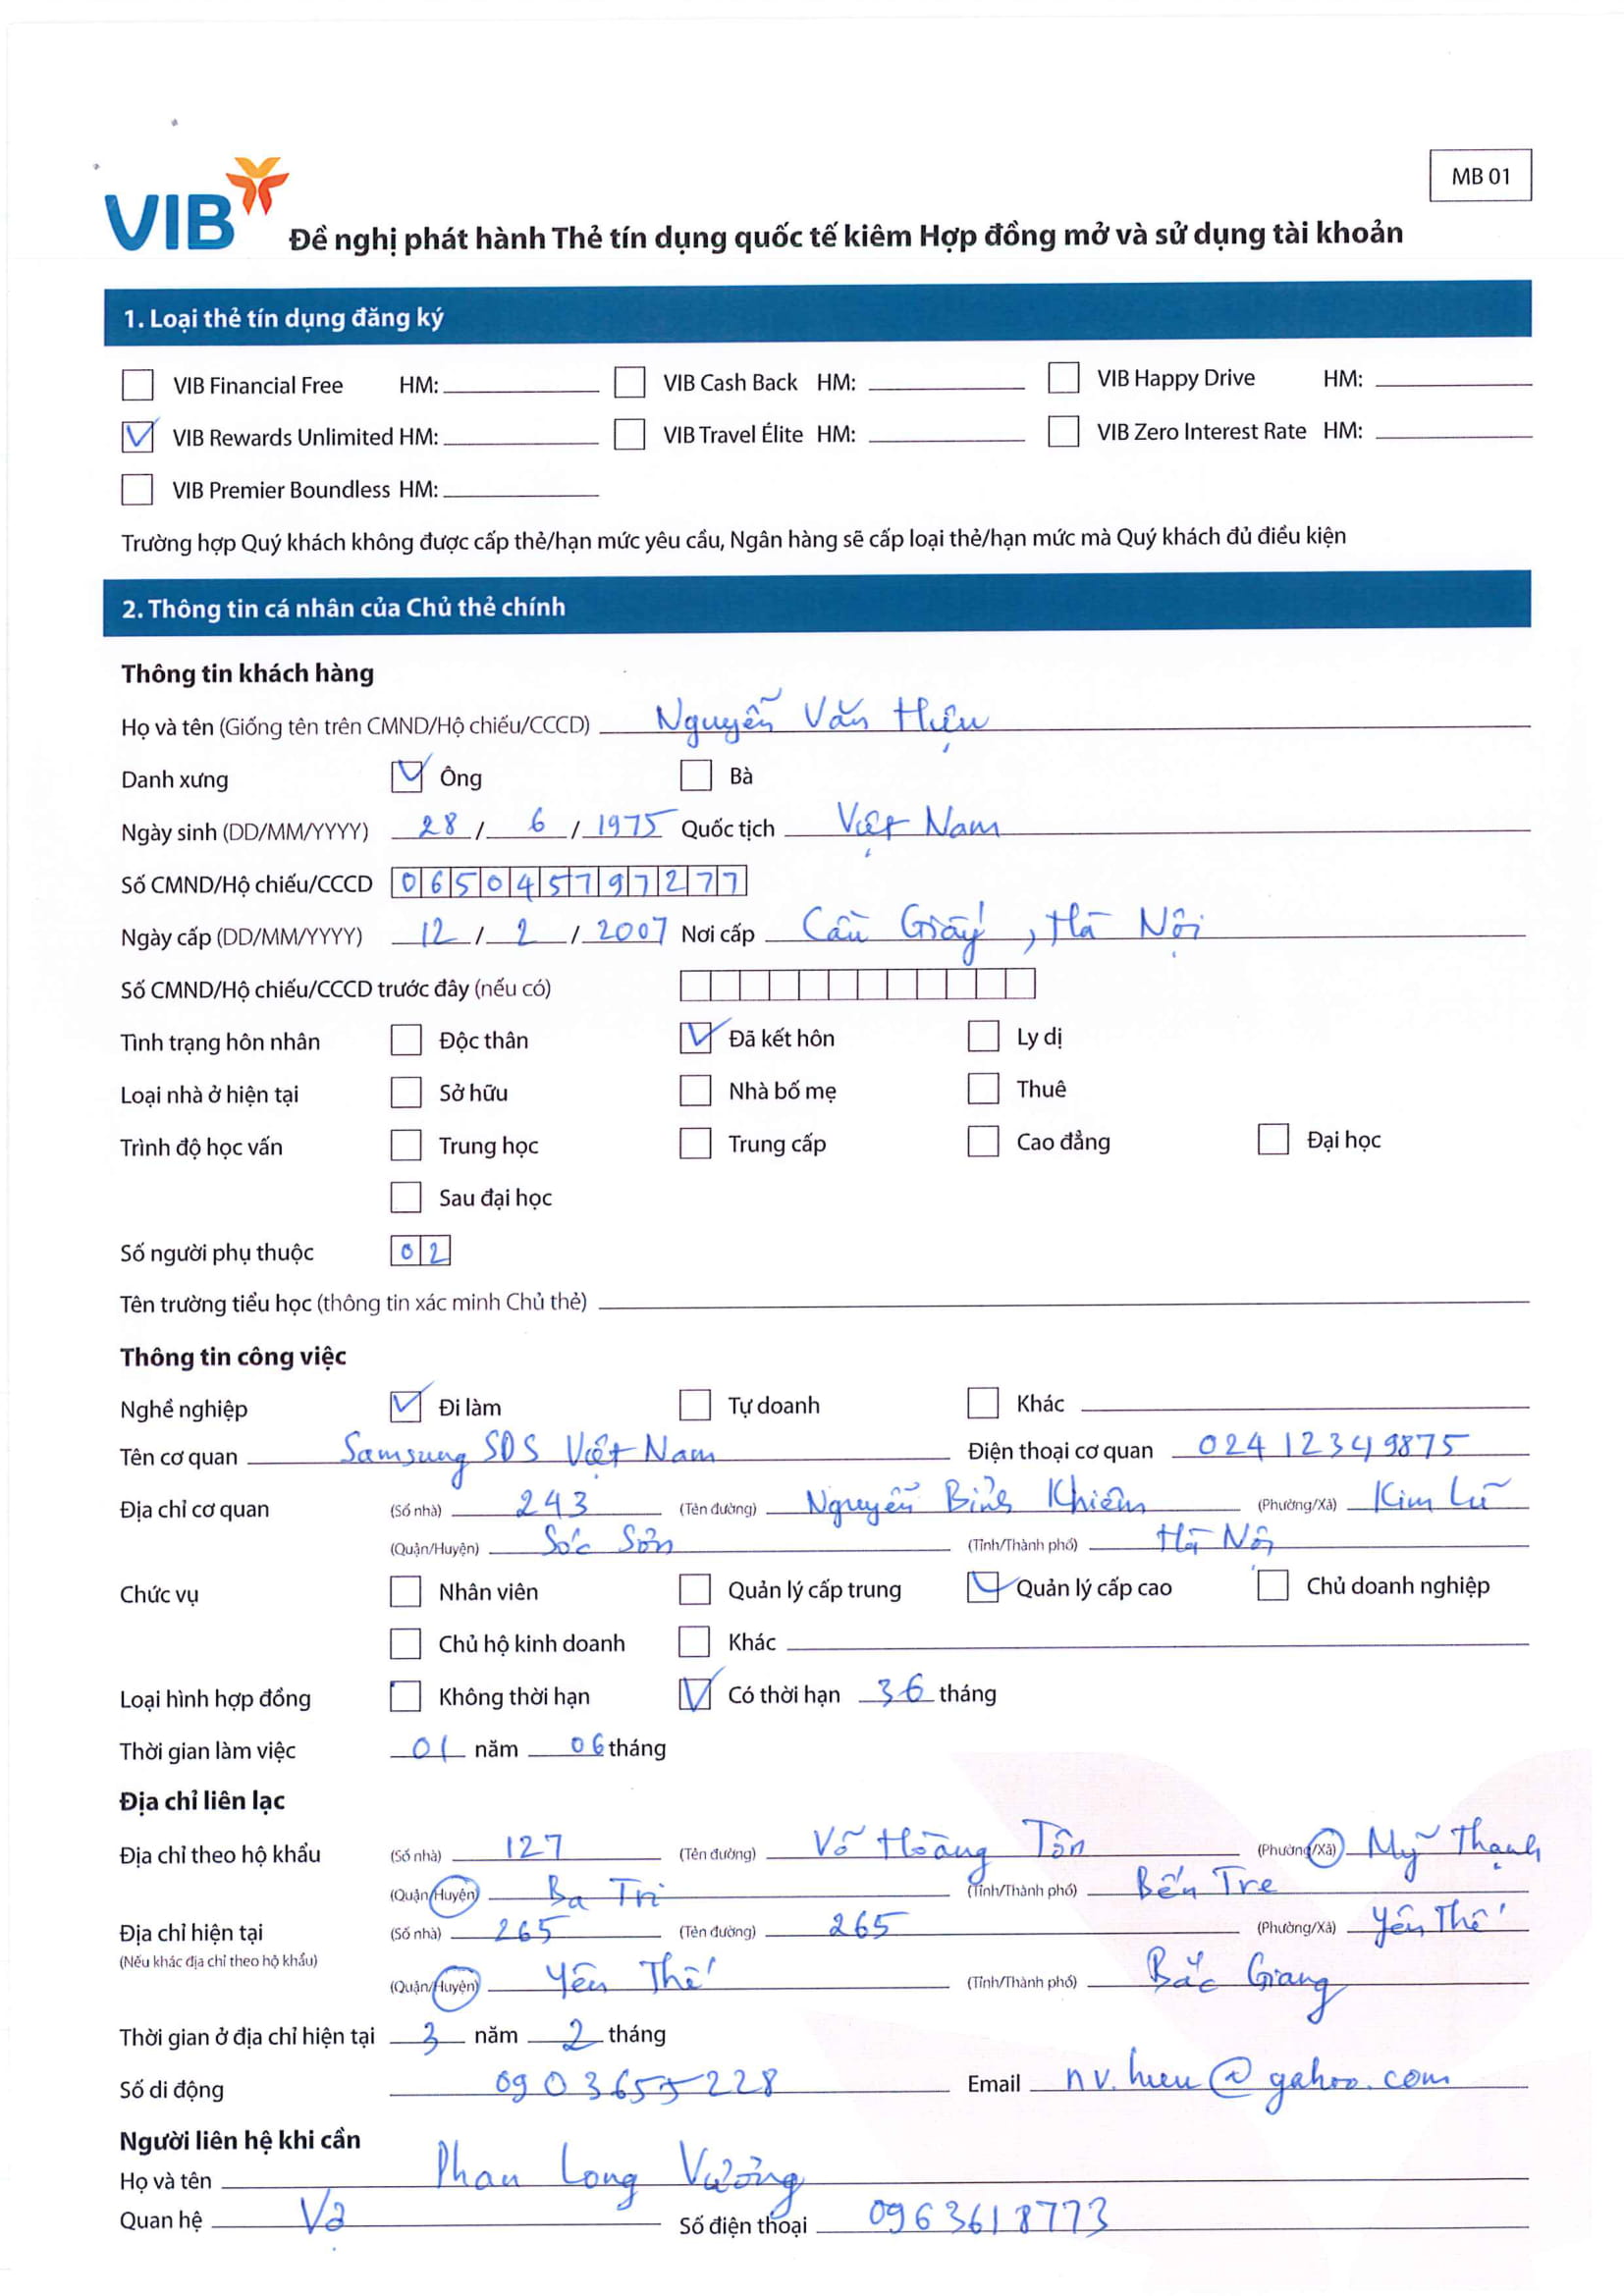 MB 01
VIB
Đề nghị phát hành Thẻ tín dụng quốc tế kiêm Hợp đồng mở và sử dụng tài khoản
1. Loại thẻ tín dụng đăng ký
VIB Financial Free HM: VIB Cash Back HM: VIB Happy Drive HM:
VIB Rewards Unlimited HM: VIB Travel Élite HM: VIB Zero Interest Rate HM:
VIB Premier Boundless HM:
Trường hợp Quý khách không được cấp thẻ/hạn mức yêu cầu, Ngân hàng sẽ cấp loại thẻ/hạn mức mà Quý khách đủ điều kiện
2. Thông tin cá nhân của Chủ thẻ chính
Thông tin khách hàng
Họ và tên (Giống tên trên CMND/Hộ chiếu/CCCD) Nguyễn Văn Hiệu
Danh xưng Ông Bà
Ngày sinh (DD/MM/YYYY) 28 / 6 / 1975 Quốc tịch Việt Nam
Số CMND/Hộ chiếu/CCCD 065045797277
Ngày cấp (DD/MM/YYYY) 12 / 2 / 2007 Nơi cấp Cầu Giấy, Hà Nội
Số CMND/Hộ chiếu/CCCD trước đây (nếu có)
Tình trạng hôn nhân Độc thân Đã kết hôn Ly dị
Loại nhà ở hiện tại Sở hữu Nhà bố mẹ Thuê
Trình độ học vấn Trung học Trung cấp Cao đẳng Đại học
Sau đại học
Số người phụ thuộc 02
Tên trường tiểu học (thông tin xác minh Chủ thẻ)
Thông tin công việc
Nghề nghiệp Đi làm Tự doanh Khác
Tên cơ quan Samsung SDS Việt Nam Điện thoại cơ quan 024 12349875
Địa chỉ cơ quan (Số nhà) 243 (Tên đường) Nguyễn Bỉnh Khiêm (Phường/Xã) Kim Lũ
(Quận/Huyện) Sóc Sơn (Tỉnh/Thành phố) Hà Nội
Chức vụ Nhân viên Quản lý cấp trung Quản lý cấp cao Chủ doanh nghiệp
Chủ hộ kinh doanh Khác
Loại hình hợp đồng Không thời hạn Có thời hạn 36 tháng
Thời gian làm việc 01 năm 06 tháng
Địa chỉ liên lạc
Địa chỉ theo hộ khẩu (Số nhà) 127 (Tên đường) Võ Hoàng Tôn (Phường/Xã) Mỹ Thạnh
(Quận/Huyện) Ba Tri (Tỉnh/Thành phố) Bến Tre
Địa chỉ hiện tại (Số nhà) 265 (Tên đường) 265 (Phường/Xã) Yên Thế
(Nếu khác địa chỉ theo hộ khẩu)
(Quận/Huyện) Yên Thế (Tỉnh/Thành phố) Bắc Giang
Thời gian ở địa chỉ hiện tại 3 năm 2 tháng
Số di động 0903655228 Email nv.hieu@yahoo.com
Người liên hệ khi cần
Họ và tên Phan Long Vương
Quan hệ Vợ Số điện thoại 0963618773